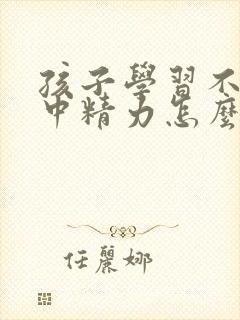 孩子學習不
中精力怎麼
任麗娜